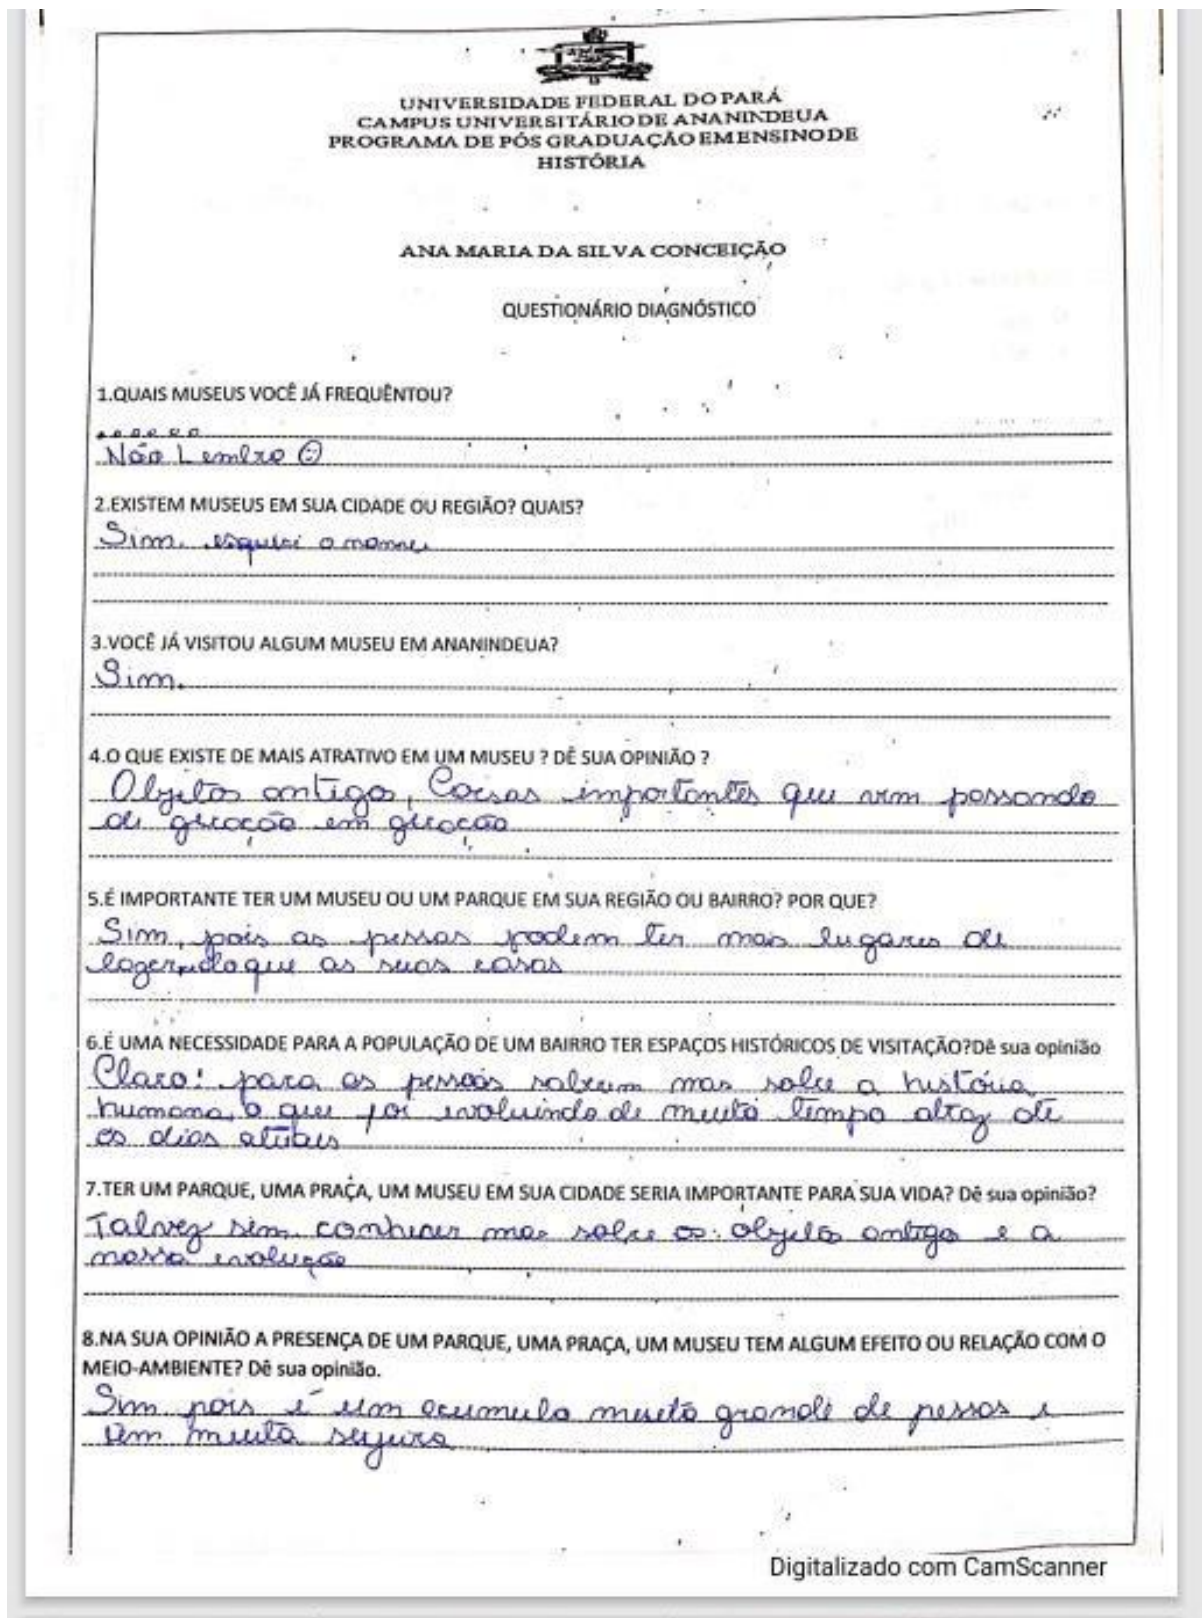 UNIVERSIDADE FEDERAL DO PARÁ
CAMPUS UNIVERSITÁRIO DE ANANINDEUA
PROGRAMA DE PÓS GRADUAÇÃO EM ENSINO DE
HISTÓRIA
ANA MARIA DA SILVA CONCEIÇÃO
QUESTIONÁRIO DIAGNÓSTICO
1.QUAIS MUSEUS VOCÊ JÁ FREQUÊNTOU?
Não Lembro
2.EXISTEM MUSEUS EM SUA CIDADE OU REGIÃO? QUAIS?
Sim. esqueci o nome
3.VOCÊ JÁ VISITOU ALGUM MUSEU EM ANANINDEUA?
Sim.
4.O QUE EXISTE DE MAIS ATRATIVO EM UM MUSEU ? DÊ SUA OPINIÃO ?
Objetos antigos, Coisas importantes que vem passando
de geração em geração
5.É IMPORTANTE TER UM MUSEU OU UM PARQUE EM SUA REGIÃO OU BAIRRO? POR QUE?
Sim, pois as pessoas podem ter mais lugares de
lazer, do que as suas casas
6.É UMA NECESSIDADE PARA A POPULAÇÃO DE UM BAIRRO TER ESPAÇOS HISTÓRICOS DE VISITAÇÃO?Dê sua opinião
Claro! para as pessoas saberem mas sobre a história
humana, o que foi evoluindo de muito tempo atraz até
os dias atuais
7.TER UM PARQUE, UMA PRAÇA, UM MUSEU EM SUA CIDADE SERIA IMPORTANTE PARA SUA VIDA? Dê sua opinião?
Talvez sim. conhecer mas sobre os objetos antigo e a
nossa evolução
8.NA SUA OPINIÃO A PRESENÇA DE UM PARQUE, UMA PRAÇA, UM MUSEU TEM ALGUM EFEITO OU RELAÇÃO COM O
MEIO-AMBIENTE? Dê sua opinião.
Sim pois é um acumulo muito grande de pessoas e
tem muita sujeira
Digitalizado com CamScanner